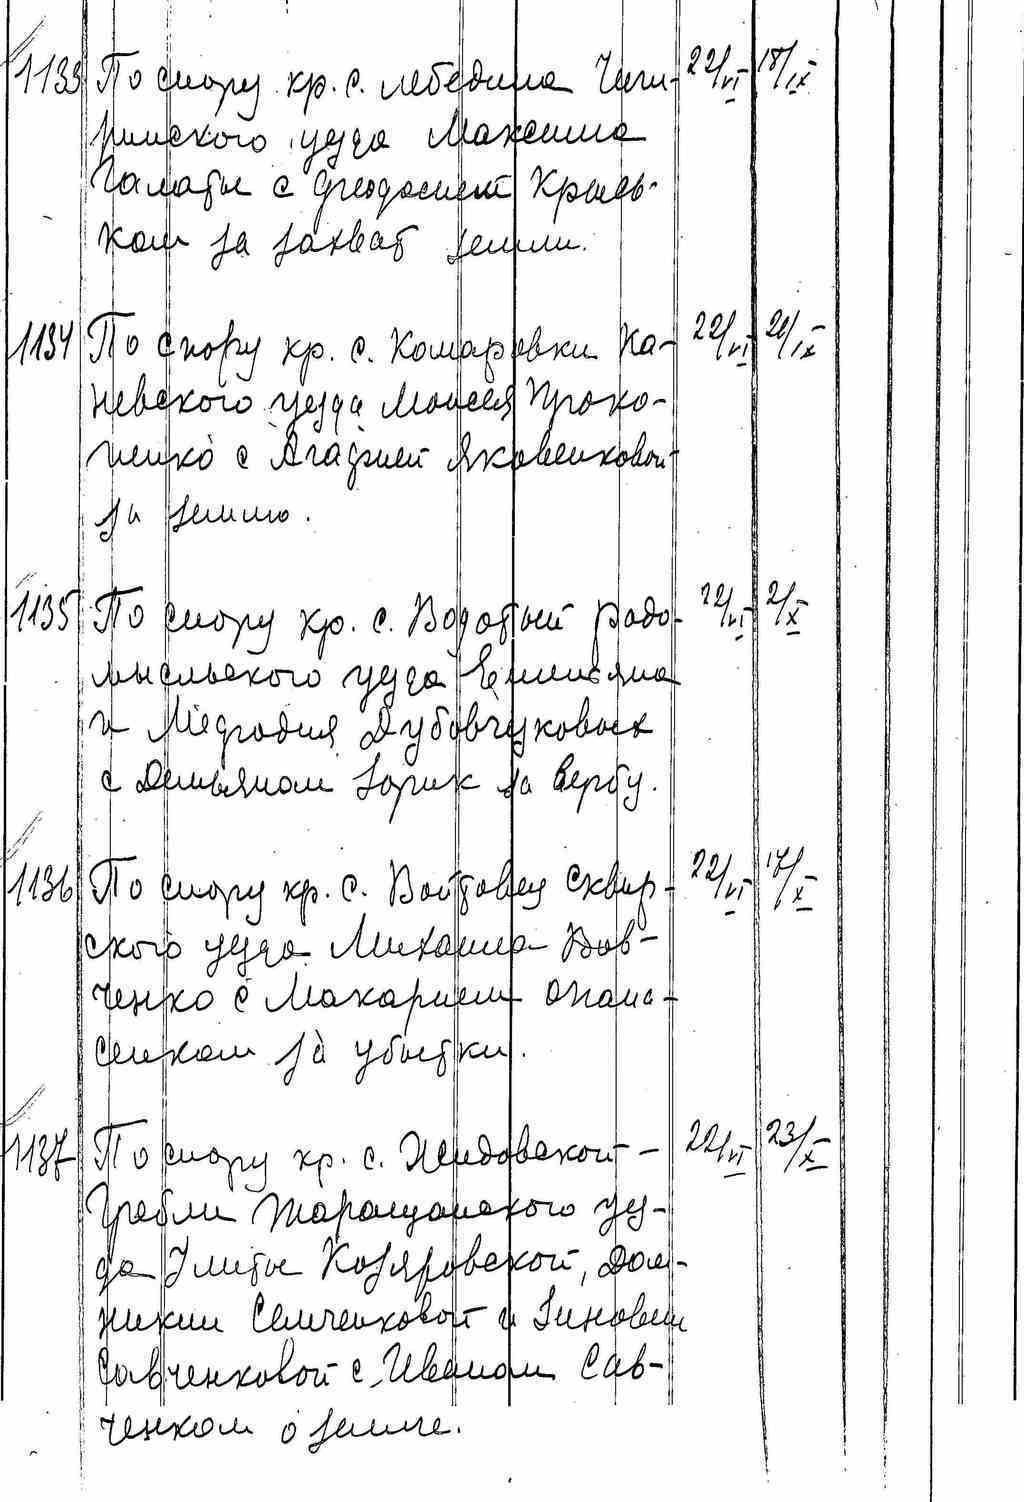 1133 По спору кр. с. Лебедина Чиги- 22/VI 18/IX
ринского уезда Максима
Галаты с Феодосием Крысь-
ком за захват земли.
1134 По спору кр. с. Комаровки Ка- 22/VI 20/IX
невского уезда Моисея Проко-
пенко с Агафией Яковенковой
за землю.
1135 По спору кр. с. Водотый Радо- 22/VI 2/X
мысльского уезда Емельяна
и Мефодия Дубовчуковых
с Демьяном Зарик за вербу.
1136 По спору кр. с. Войтовец Сквир- 22/VI 17/X
ского уезда Михаила Вов-
ченко с Макарием Опана-
сенком за убытки.
1137 По спору кр. с. Жидовской- 22/VI 23/X
Гребли Таращанского уез-
да Улиты Козяровской, Дом-
никии Семченковой и Зиновии
Савченковой с Иваном Сав-
ченком о земле.